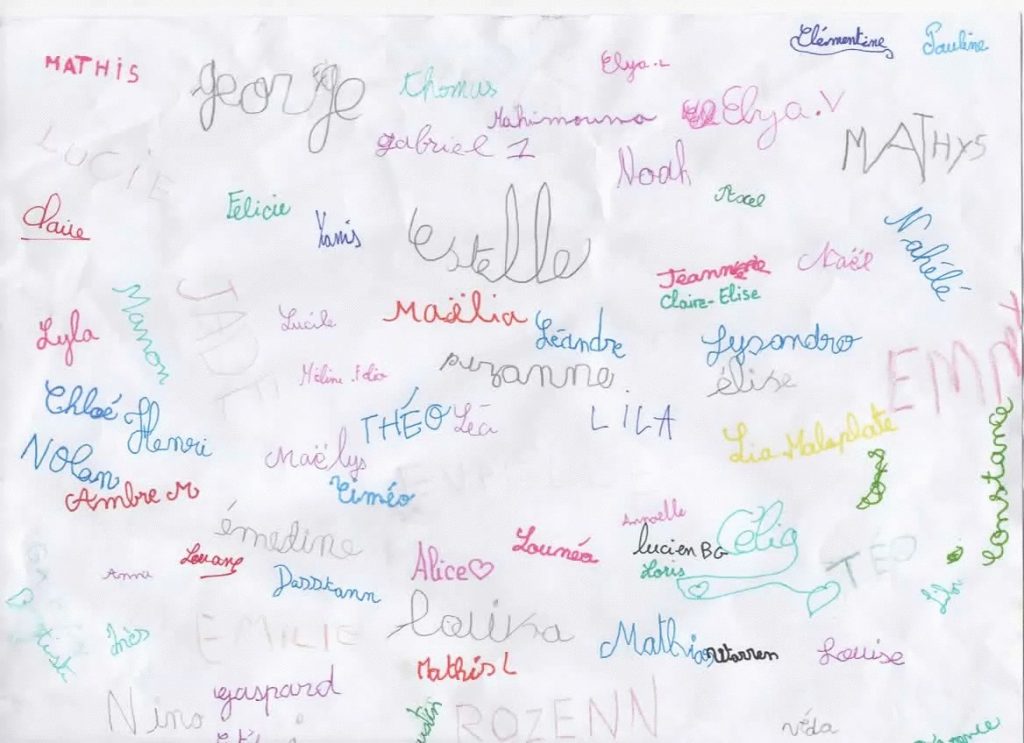 Clémentine
Pauline
MATHIS
george
thomas
Elya.L
Mahimouna
Elya.V
gabriel 1
MATHYS
LUCIE
Noah
Axel
Claire
Félicie
Yanis
estelle
Nahélé
Naël
Jeanne
Claire-Elise
Manon
JADE
Lyla
Lucile
Maëlia
Léandre
Lysandro
suzanne.
élise
EMMY
Chloé
Henri
THÉO
LILA
Lia Malaplate
Nolan
Maëlys
Constance
Ambre M
Timéo
émeline
Annaelle
Célia
Lounéa
lucien BG
Louane
Alice♡
Loris
TÉO
Dasstann
Inès
EMILIE
louisa
Mathis
Warren
Louise
Mathis L
gaspard
Nino
ROZENN
Véda